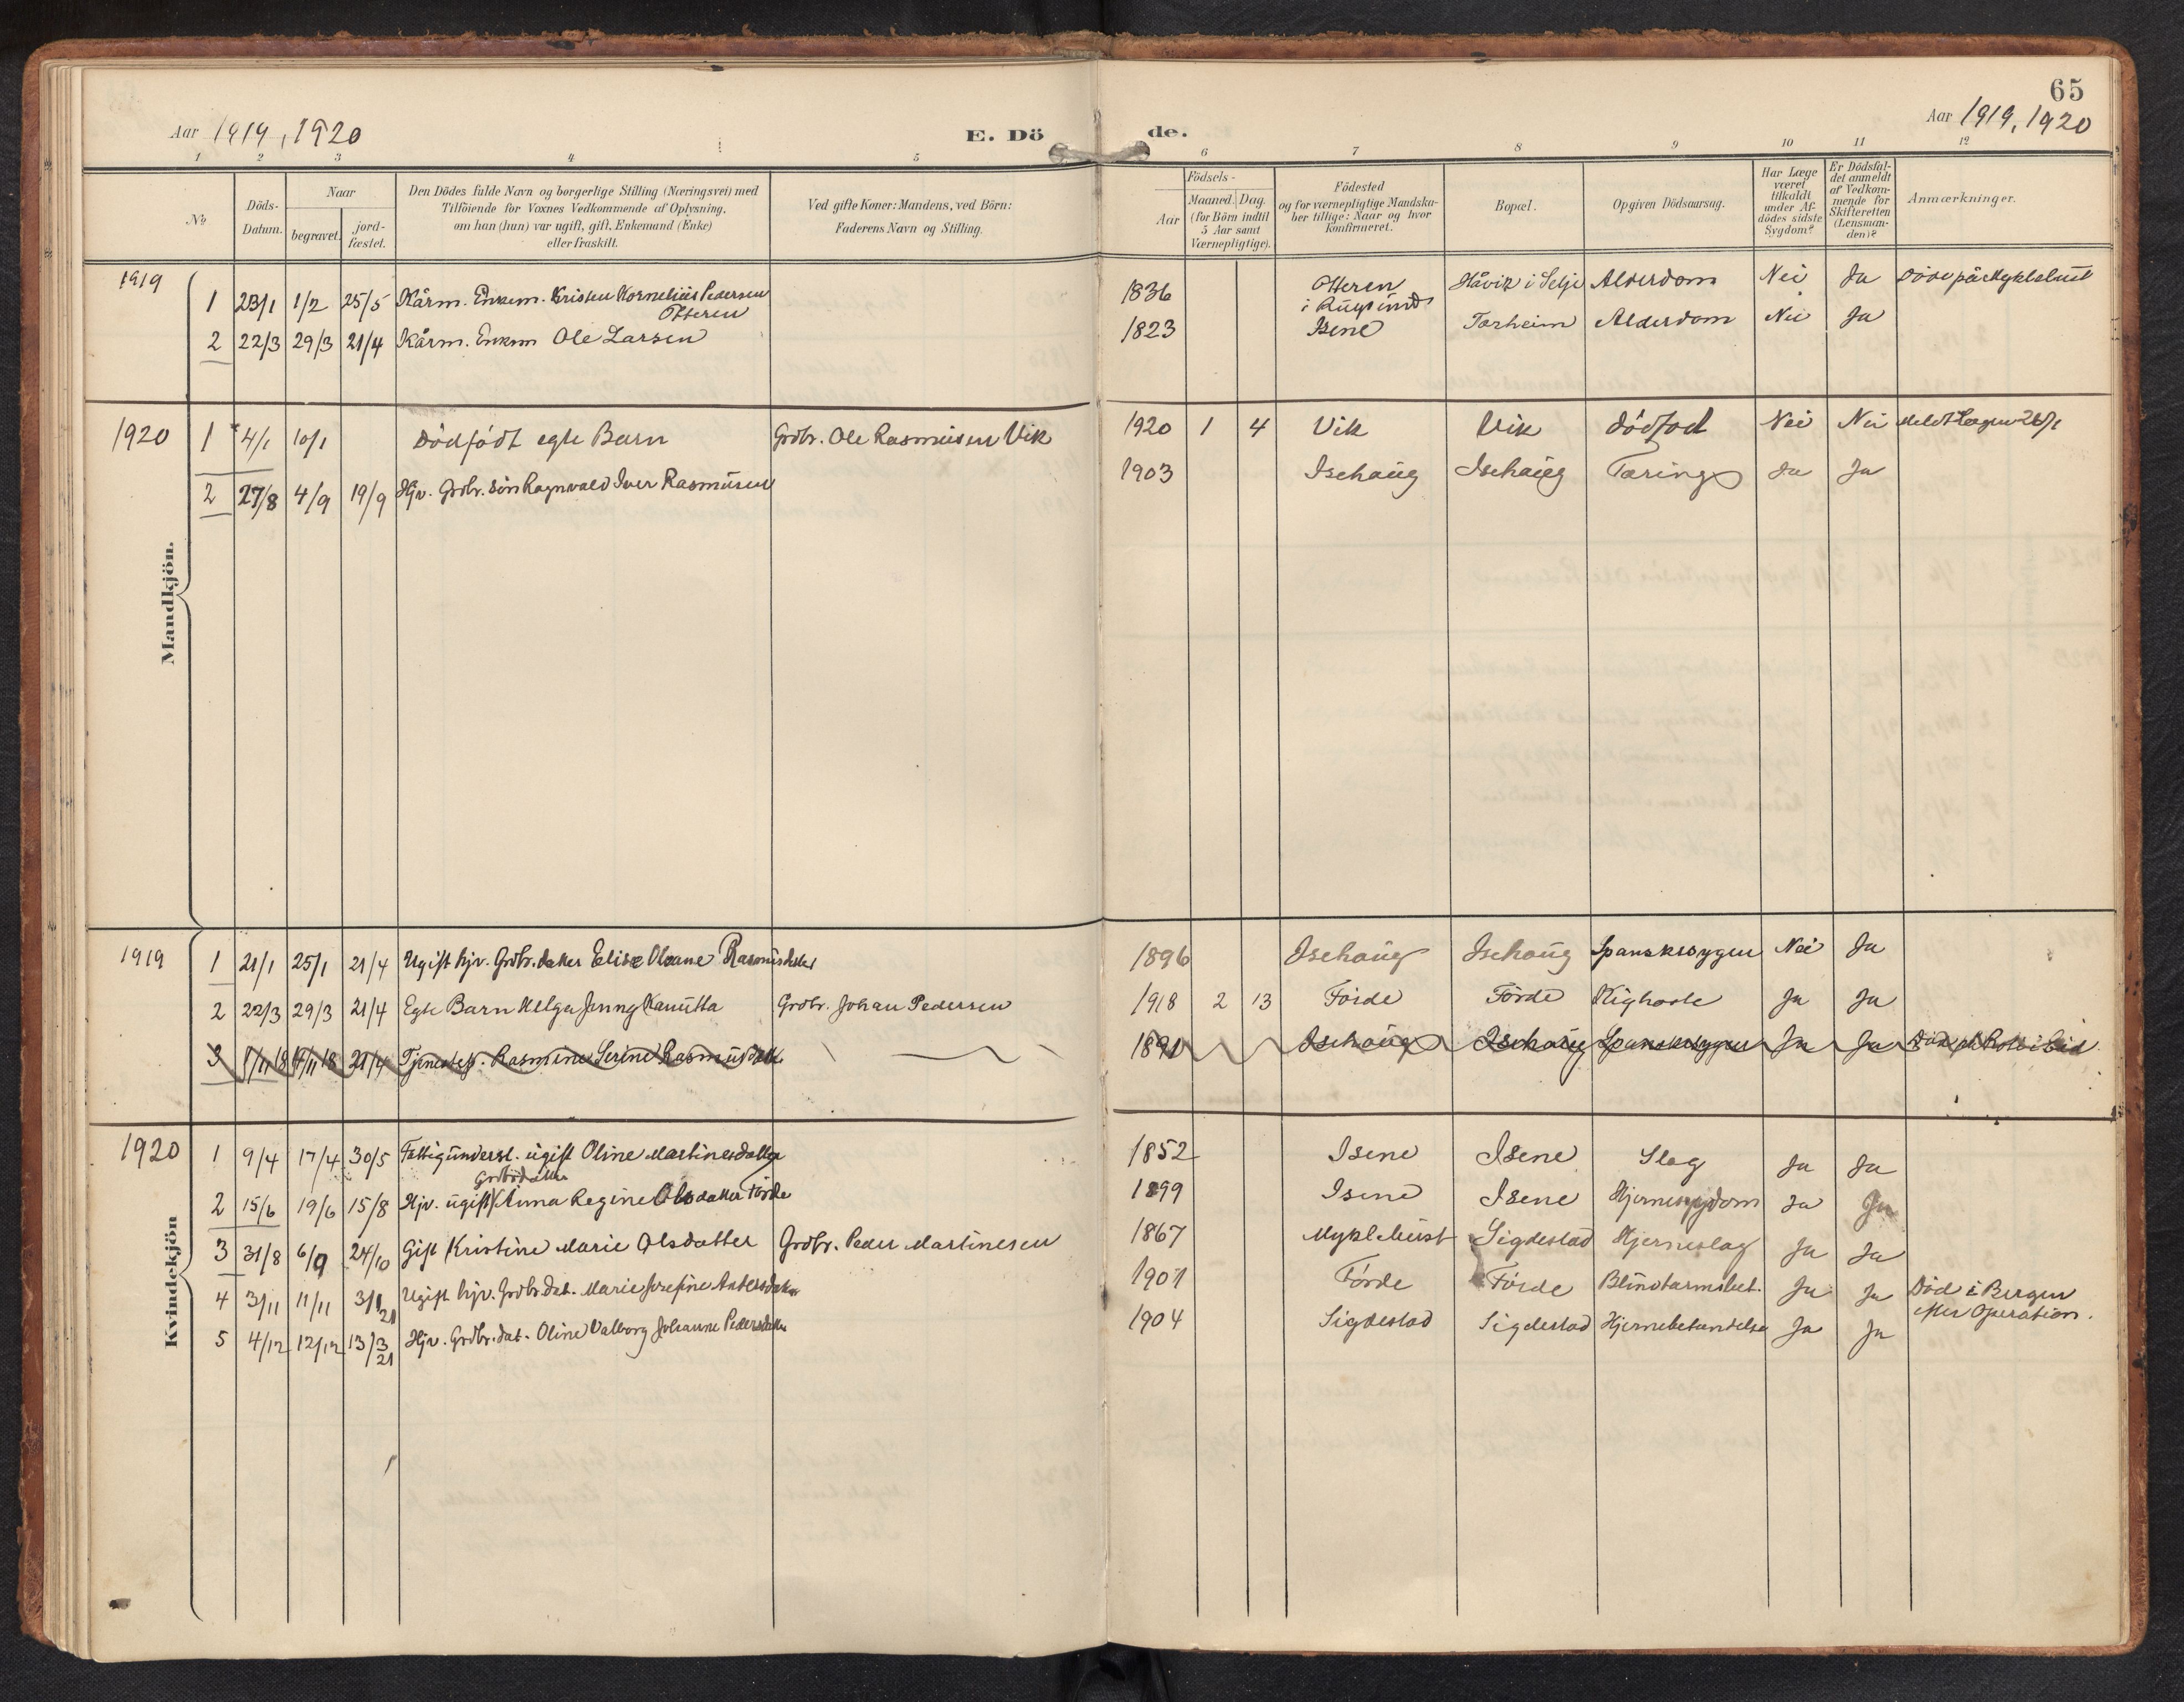 65
Aar 1919, 1920 E. Dö de. Aar 1919, 1920
1 2 3 4 5 6 7 8 9 10 11 12
No
Döds-Datum.
Naar
begravet.
jord-fæstet.
Den Dödes fulde Navn og borgerlige Stilling (Næringsvei) med
Tilföiende for Voxnes Vedkommende af Oplysning,
om han (hun) var ugift, gift, Enkemand (Enke)
eller fraskilt.
Ved gifte Koner: Mandens, ved Börn:
Faderens Navn og Stilling.
Födsels-
Aar
Maaned. Dag.
(for Börn indtil
5 Aar samt
Værnepligtige).
Födested
og for værnepligtige Mandska-
ber tillige: Naar og hvor
konfirmeret.
Bopæl.
Opgiven Dödsaarsag.
Har Læge
været
tilkaldt
under Af-
dödes sidste
Sygdom?
Er Dödsfal-
det anmeldt
af Vedkom-
mende for
Skifteretten
(Lensman-
den)?
Anmærkninger.
Mandkjön.
1919 1 23/1 1/2 25/5 Kårm. Enkem. Kristen Kornelius Pedersen Otteren 1836 Otteren i Rugsund Håvik i Selje Alderdom Nei Ja Döde på Myklebust
2 22/3 29/3 21/4 Kårm. Enkem Ole Larsen 1823 Isene Torheim Alderdom Nei Ja
1920 1 4/1 10/1 Dödfödt egte Barn Grdbr. Ole Rasmussen Vik 1920 1 4 Vik Vik dödfød Nei Nei Meldt Lægen 26/1
2 27/8 4/9 19/9 Hjv. Grdbr. sön Ragnvald Iver Rasmussen 1903 Isehaug Isehaug Tæring Ja Ja
Kvindekjön
1919 1 21/1 25/1 21/4 Ugift hjv. Grdbr. datter Elise Oleane Rasmusdatter 1896 Isehaug Isehaug Spansksygen Nei Ja
2 22/3 29/3 21/4 Egte Barn Helga Jenny Kanutta Grdbr. Johan Pedersen 1918 2 13 Förde Förde Kighoste Ja Ja
3 7/11 18 21/4 Tjenestep. Rasmine Serine Rasmusdatt 1891 Isehaug Isehaug Spansksygen Ja Ja
1920 1 9/4 17/4 30/5 Fattigunderst. ugift Oline Martinesdatter 1852 Isene Isene Slag Ja Ja
Grdbrdatter
2 15/6 19/6 15/8 Hjv. ugift Anna Regine Olsdatter Förde 1899 Isene Isene Hjernesygdom Ja Ja
3 31/8 6/9 24/10 Gift Kristine Marie Olsdatter Grdbr. Peder Martinesen 1867 Myklebust Sigdestad Hjerneslag Ja Ja
4 3/11 11/11 3/1 21 Ugift hjv. Grdbr. dat. Marie Josefine Antersdatter 1901 Förde Förde Blindtarmsbet. Ja Ja Död i Bergen
efter Operation.
5 4/12 12/12 13/3 21 Hjv. Grdbr. dat. Oline Valborg Johanne Pedersdatter 1904 Sigdestad Sigdestad Hjernebetændelse Ja Ja